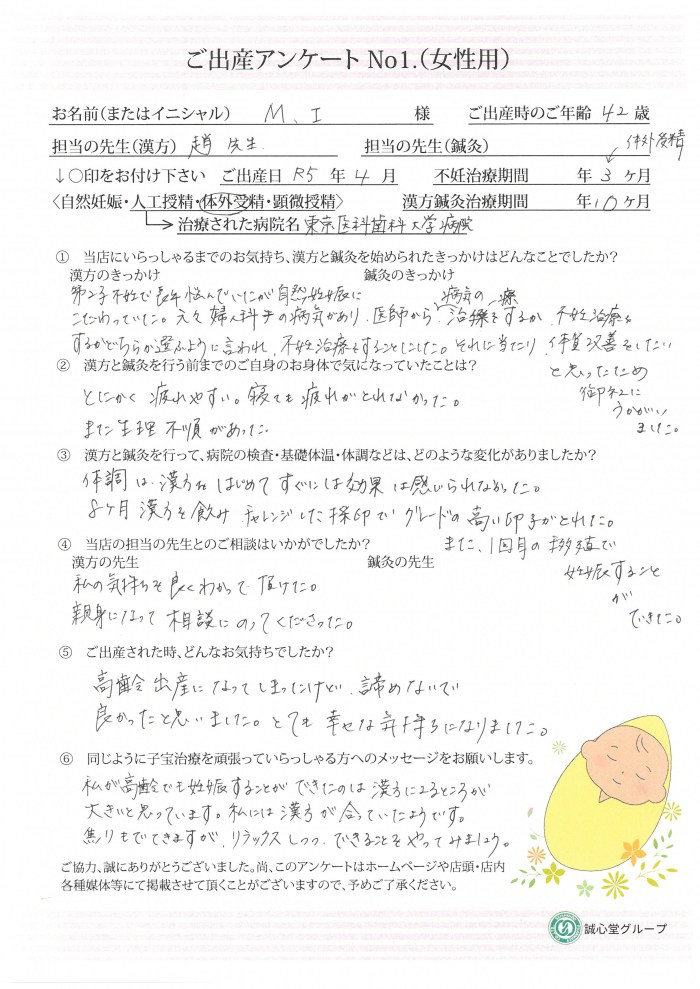 ご出産アンケート No1.（女性用）
お名前（またはイニシャル） M、I 様 ご出産時のご年齢 42 歳
担当の先生（漢方） 趙 先生 担当の先生（鍼灸） 体外受精
↓○印をお付け下さい ご出産日 R5 年 4 月 不妊治療期間 年 3 ヶ月
〈自然妊娠・人工授精・体外受精・顕微授精〉 漢方鍼灸治療期間 年 10 ヶ月
治療された病院名 東京医科歯科大学病院
① 当店にいらっしゃるまでのお気持ち、漢方と鍼灸を始められたきっかけはどんなことでしたか？
漢方のきっかけ 鍼灸のきっかけ
第2子不妊で長年悩んでいたが自然妊娠に
こだわっていた。元々婦人科系の病気があり、医師から病気の治療をするか、不妊治療を
するかどちらか選ぶように言われ、不妊治療をすることにした。それに当たり、体質改善をしたい
と思ったため
御社に
うかがい
ました。
② 漢方と鍼灸を行う前までのご自身のお身体で気になっていたことは？
とにかく疲れやすい。寝ても疲れがとれなかった。
また生理不順があった。
③ 漢方と鍼灸を行って、病院の検査・基礎体温・体調などは、どのような変化がありましたか？
体調は、漢方をはじめてすぐには効果は感じられなかった。
8ヶ月漢方を飲み、チャレンジした採卵でグレードの高い卵子がとれた。
また、1回目の移植で
妊娠すること
が
できた。
④ 当店の担当の先生とのご相談はいかがでしたか？
漢方の先生 鍼灸の先生
私の気持ちを良くわかって頂けた。
親身になって相談にのってくださった。
⑤ ご出産された時、どんなお気持ちでしたか？
高齢出産になってしまったけど、諦めないで
良かったと思いました。とても幸せな気持ちになりました。
⑥ 同じように子宝治療を頑張っていらっしゃる方へのメッセージをお願いします。
私が高齢でも妊娠することができたのは漢方によるところが
大きいと思っています。私には漢方が合っていたようです。
焦りもでてきますが、リラックスしつつ、できることをやってみましょう。
ご協力、誠にありがとうございました。尚、このアンケートはホームページや店頭・店内
各種媒体等にて掲載させて頂くことがございますので、予めご了承ください。
誠心堂グループ